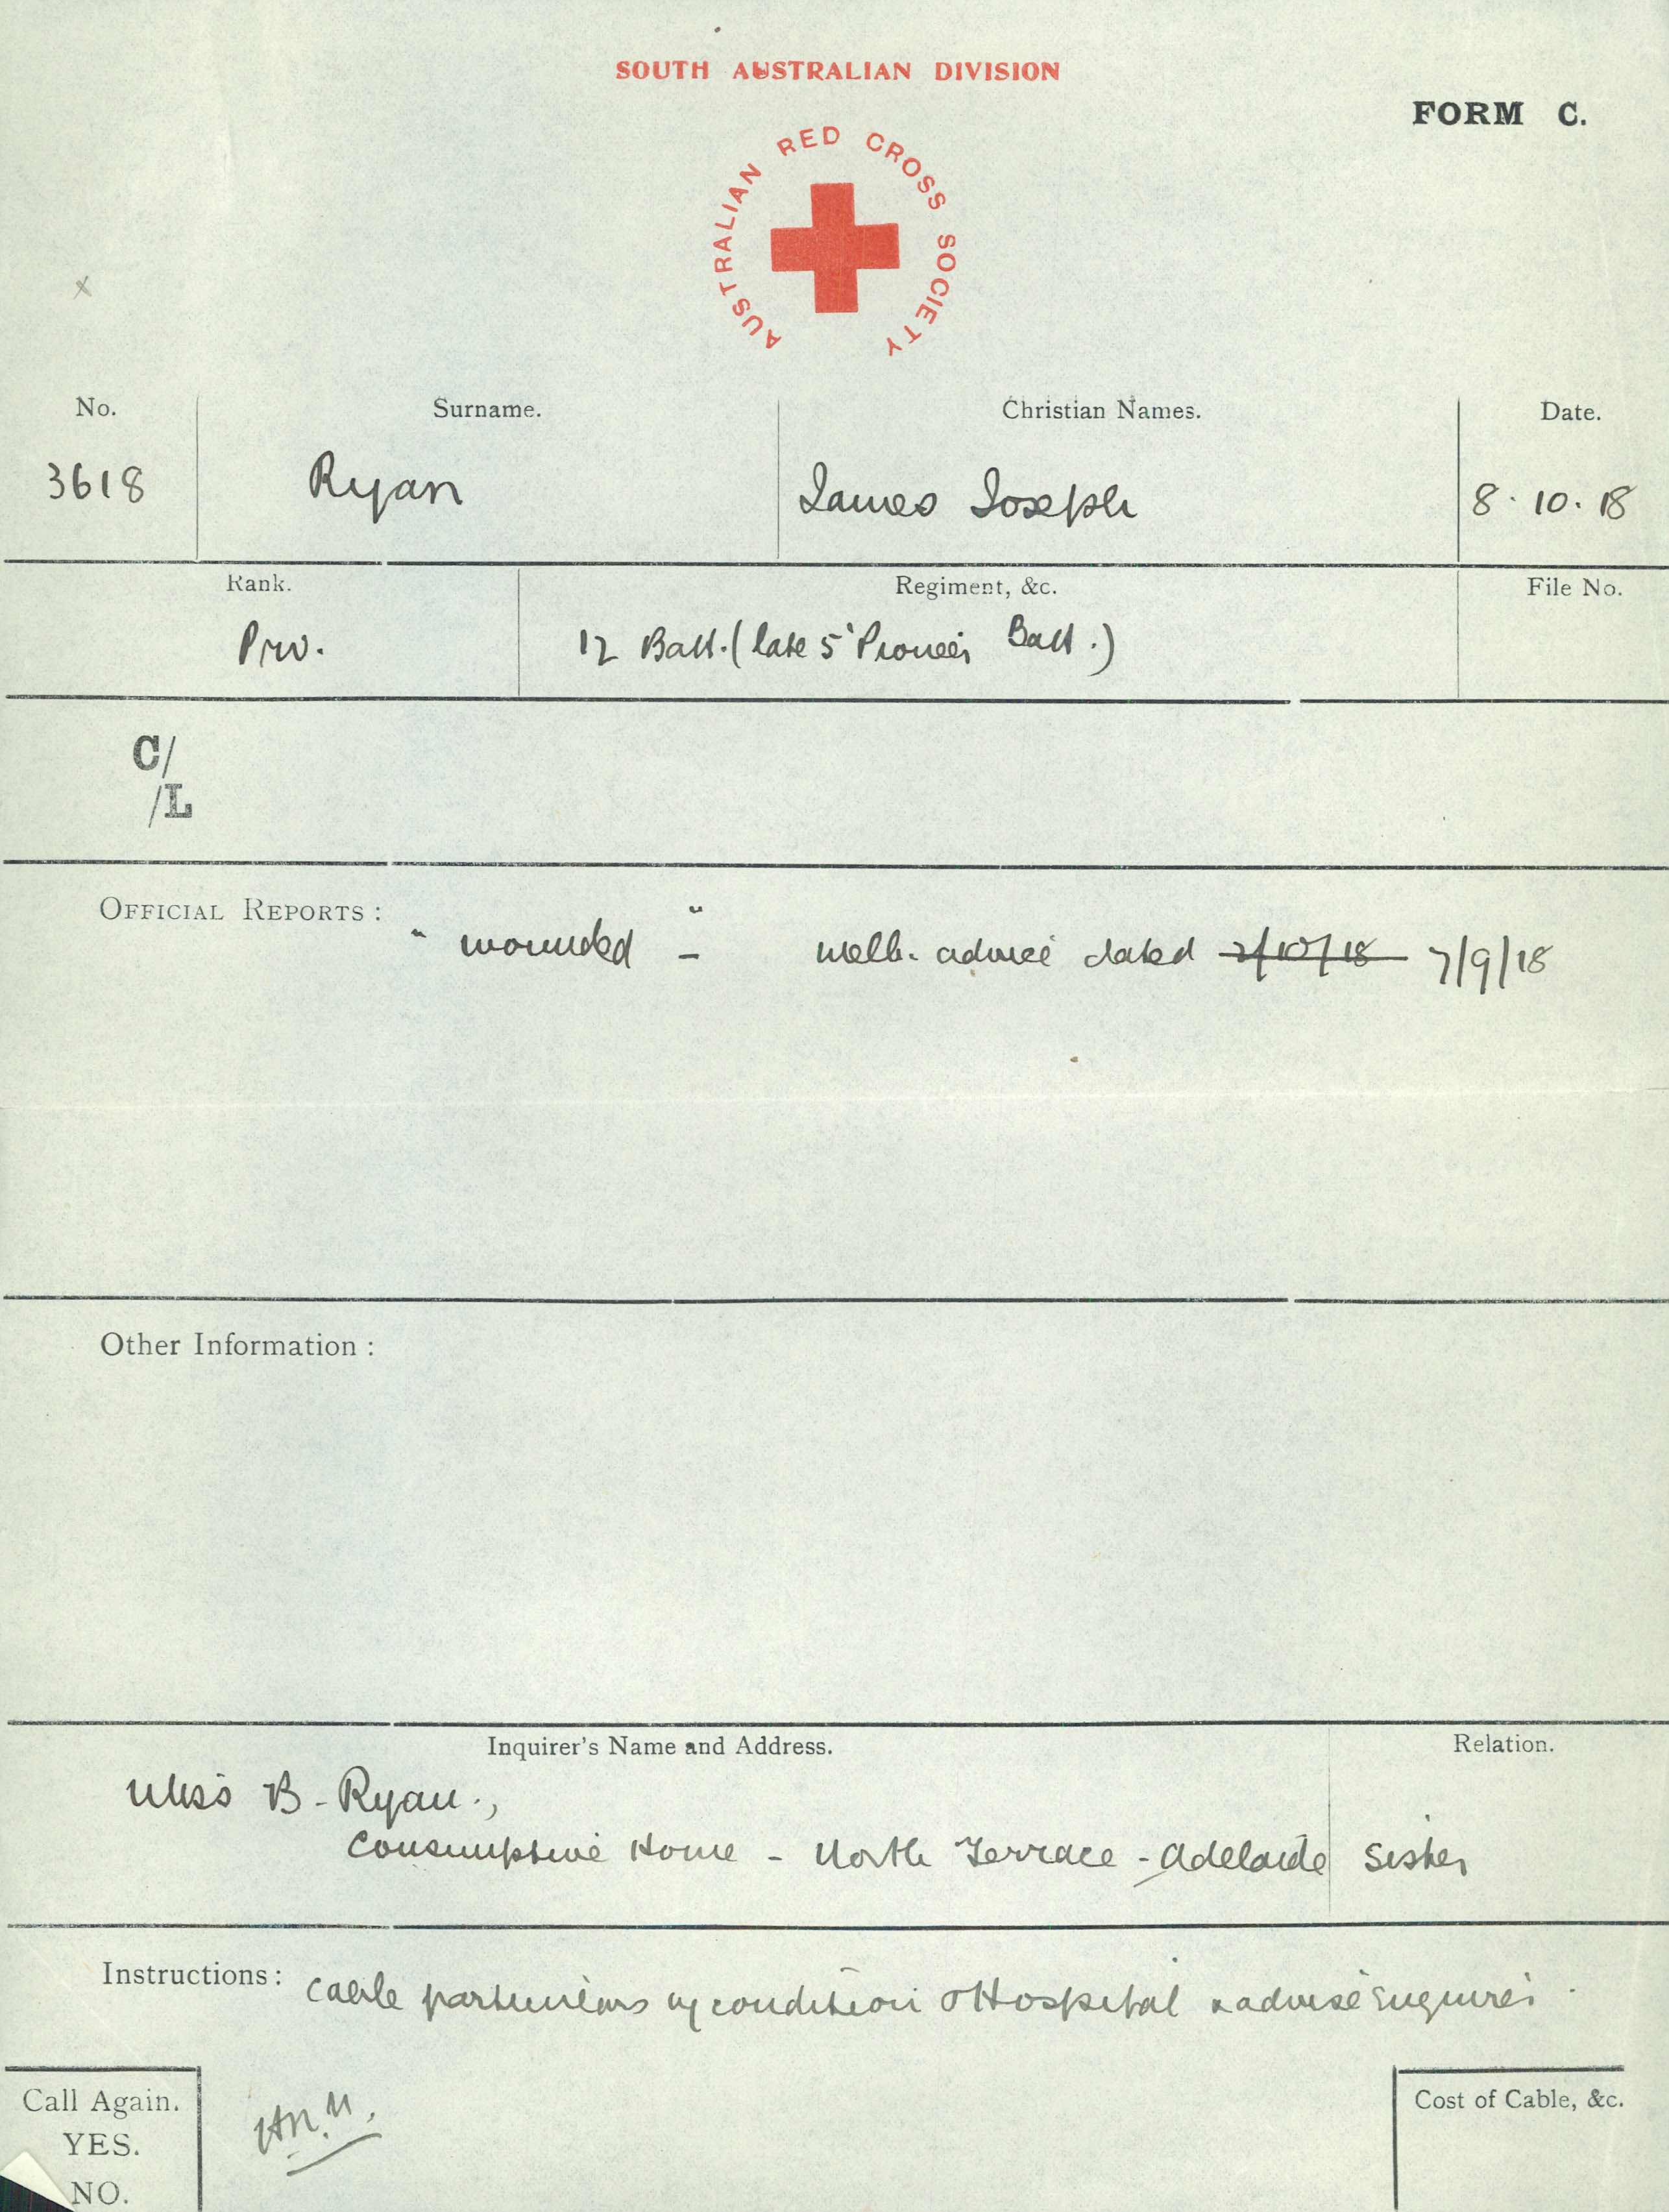 SOUTH AUSTRALIAN DIVISION
FORM C.
AUSTRALIAN RED CROSS SOCIETY
x
No. Surname. Christian Names. Date.
3618 Ryan James Joseph 8.10.18
Rank. Regiment, &c. File No.
Priv. 12 Batt. (late 5 Pioneer Batt.)
C/
/L
OFFICIAL REPORTS:
"wounded" - Melb. advice dated 2/10/18 7/9/18
Other Information:
Inquirer's Name and Address. Relation.
Miss B. Ryan.,
Consumptive Home - North Terrace - Adelaide Sister
Instructions: Cable particulars condition Hospital & advise Enquirer.
Call Again.
YES.
NO.
Cost of Cable, &c.